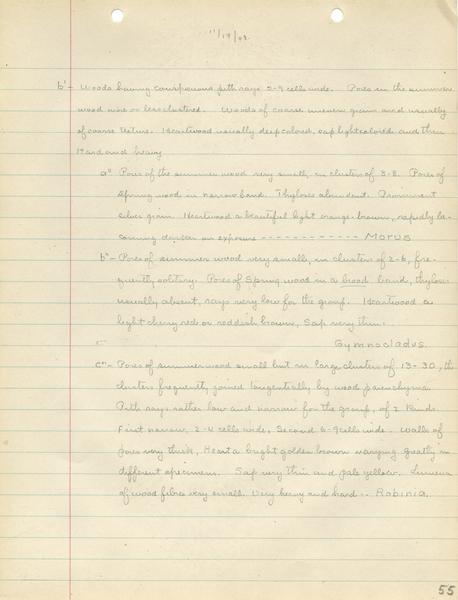 11/19/08.
b' - Woods having conspicuous pith rays 5-9 cells wide. Pores in the summer
wood more or less clustered. Woods of coarse uneven grain and usually
of coarse texture. Heartwood usually deep colored, sap light colored and thin
Hard and heavy
a" Pores of the summer wood very small, in clusters of 3-8. Pores of
Spring wood in narrow band. Thyloses abundant. Prominent
silver grain. Heartwood a beautiful light orange-brown, rapidly be-
coming darker on exposure - - - - - - - - - - - - Morus
b" - Pores of summer wood very small, in clusters of 2-6, fre-
quently solitary. Pores of Spring wood in a broad band, thyloses
usually absent, rays very low for the group. Heartwood a
light cherry red or reddish brown, Sap very thin:
Gymnocladus.
c" - Pores of summer wood small but in large clusters of 13-30, the
clusters frequently joined tangentially by wood parenchyma
Pith rays rather low and narrow for the group, of 2 kinds.
First narrow, 2-4 cells wide, Second 6-9 cells wide. Walls of
pores very thick, Heart a bright golden brown varying greatly in
different specimens. Sap very thin and pale yellow. Lumena
of wood fibres very small. Very heavy and hard -- Robinia.
55